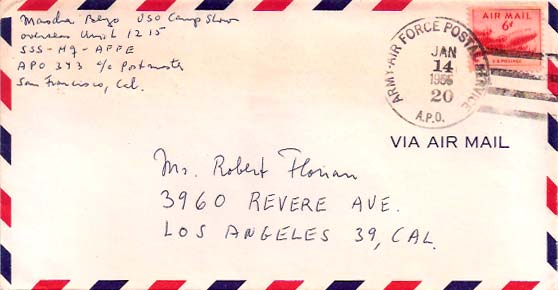 Mascha Beyo USO Camp Show
overseas Unit 1215
SSS-HQ-AFFE
APO 343 c/o Postmaster
San Francisco, Cal.
ARMY-AIR FORCE POSTAL SERVICE
JAN
14
1956
20
A.P.O.
AIR MAIL
6¢
U.S. POSTAGE
VIA AIR MAIL
Mr. Robert Florian
3960 REVERE AVE.
LOS ANGELES 39, CAL.